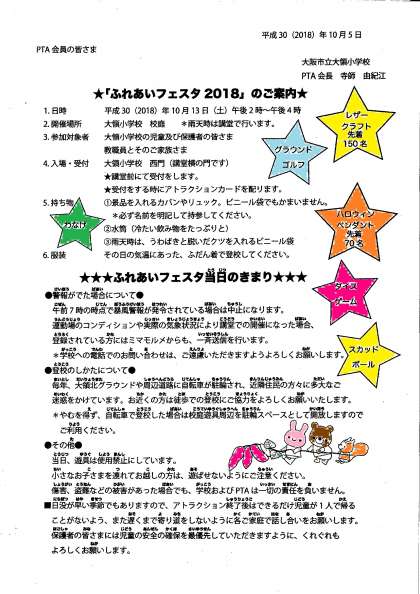 平成30（2018）年10月5日
PTA会員の皆さま
大阪市立大領小学校
PTA会長　寺師　由紀江
★「ふれあいフェスタ2018」のご案内★
1. 日時　平成30（2018）年10月13日（土）午後2時～午後4時
2. 開催場所　大領小学校　校庭　＊雨天時は講堂で行います。
3. 参加対象者　大領小学校の児童及び保護者の皆さま
教職員とそのご家族さま
4. 入場・受付　大領小学校　西門（講堂横の門です）
★講堂前にて受付をします。
★受付をする時にアトラクションカードを配ります。
5. 持ち物　①景品を入れるカバンやリュック。ビニール袋でもかまいません。
＊必ず名前を明記して持参してください。
②水筒（冷たい飲み物をたっぷりと）
③雨天時は、うわばきと脱いだクツを入れるビニール袋
6. 服装　その日の気温にあった、ふだん着で登校してください。
レザー
クラフト
先着
150名
グラウンド
ゴルフ
わなげ
ハロウィン
ペンダント
先着
70名
クイズ
ゲーム
スカッド
ボール
★★★ふれあいフェスタ当日のきまり★★★
●警報がでた場合について●
午前7時の時点で暴風警報が発令されている場合は中止になります。
運動場のコンディションや実際の気象状況により講堂での開催になった場合、
登録されている方にはミマモルメからも、一斉送信を行います。
＊学校への電話でのお問い合わせは、ご遠慮いただきますようよろしくお願いします。
●登校のしかたについて●
毎年、大領北グラウンドや周辺道路に自転車が駐輪され、近隣住民の方々に多大なご
迷惑をかけています。お近くの方は徒歩での登校にご協力をよろしくお願いいたします。
＊やむを得ず、自転車で登校した場合は校庭遊具周辺を駐輪スペースとして開放しますので
ご利用ください。
●その他●
当日、遊具は使用禁止にしています。
小さなお子さまを連れてお越しの方は、遊ばせないようにご注意ください。
傷害、盗難などの被害があった場合でも、学校およびPTAは一切の責任を負いません。
■日没が早い季節でもありますので、アトラクション終了後はできるだけ児童が1人で帰る
ことがないよう、また遅くまで寄り道をしないように各ご家庭で話し合いをお願いします。
保護者の皆さまには児童の安全の確保を最優先していただきますように、くれぐれも
よろしくお願いします。